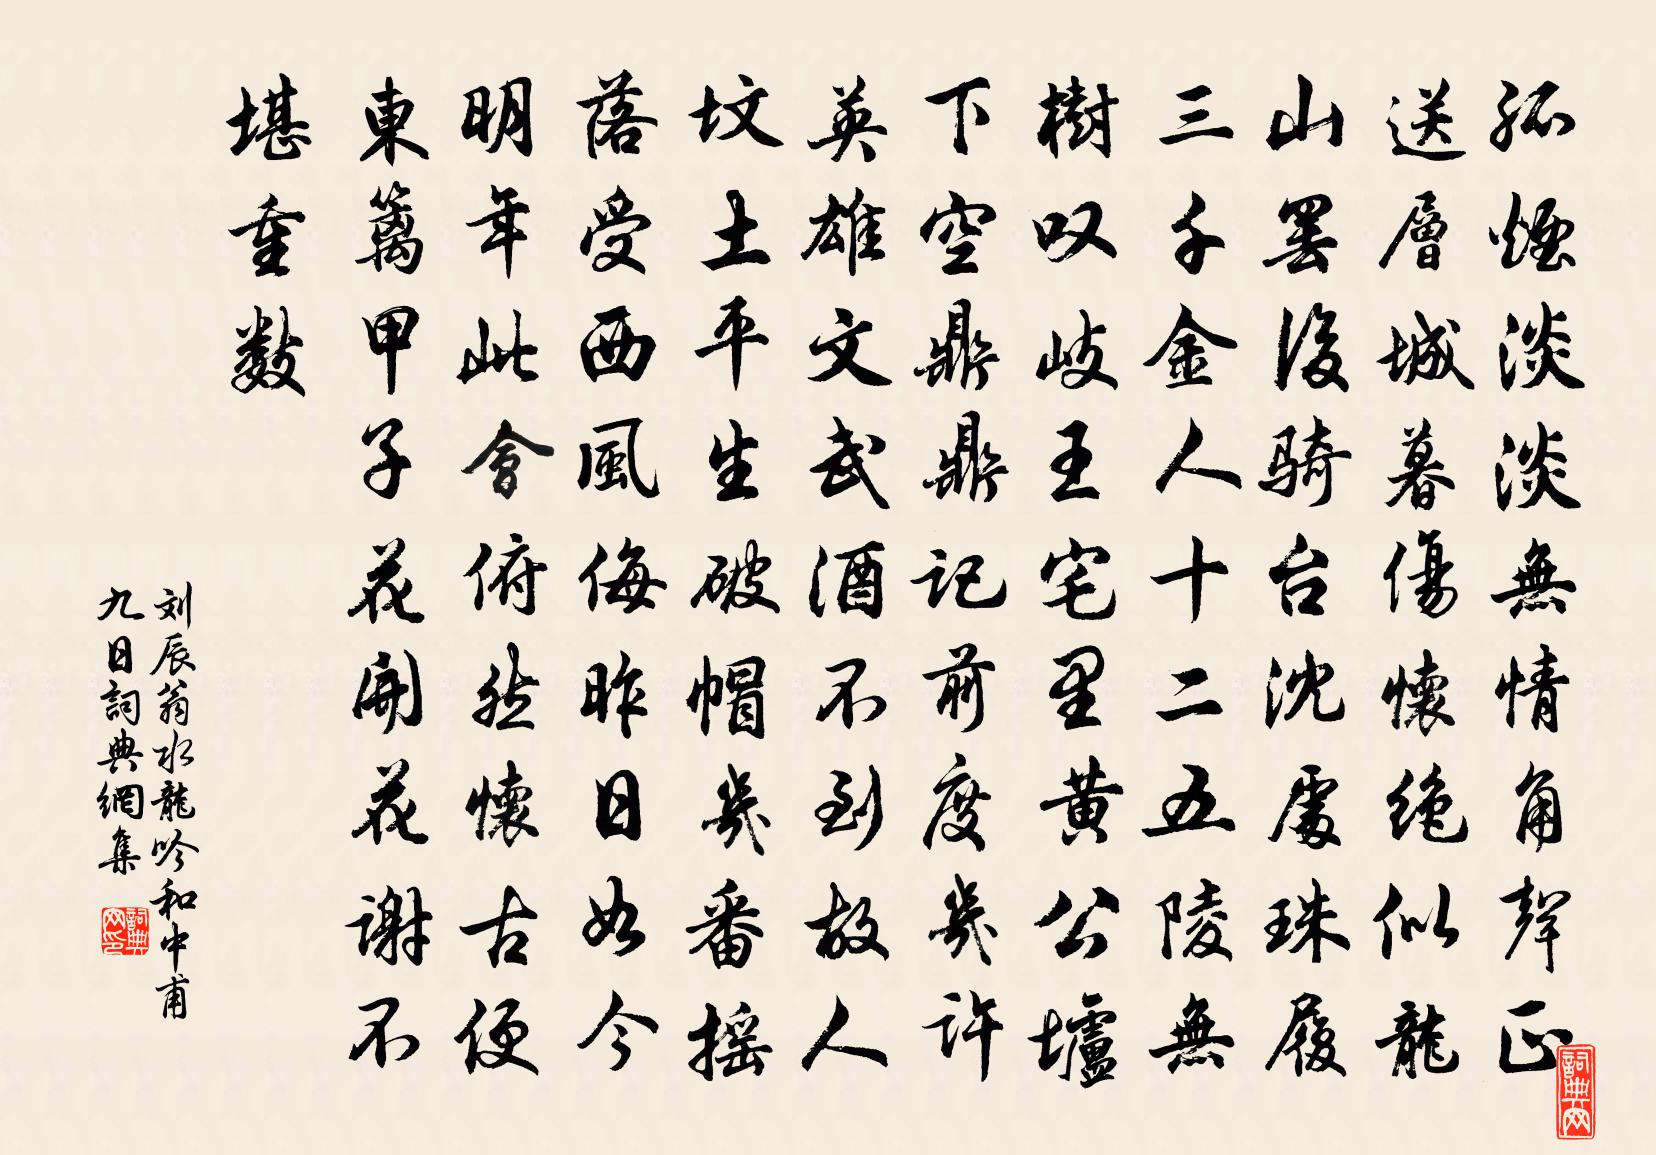 孤煙淡淡無情角聲正
送層城暮傷懷絶似龍
山罢後骑台沈處珠履
三千金人十二五陵無
樹叹岐王宅里黄公壚
下空鼎鼎记前度幾许
英雄文武酒不到故人
坟土平生破帽幾番摇
落受西風侮昨日如今
明年此會俯然懷古便
東籬甲子花開花谢不
堪重數
刘辰翁水龍吟和中甫
九日詞典網集
詞典网印
詞典网